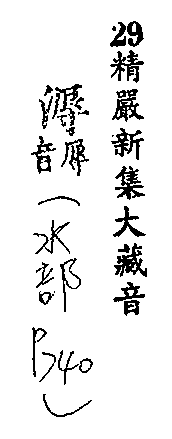 29精嚴新集大藏音
音
(水部 P40)